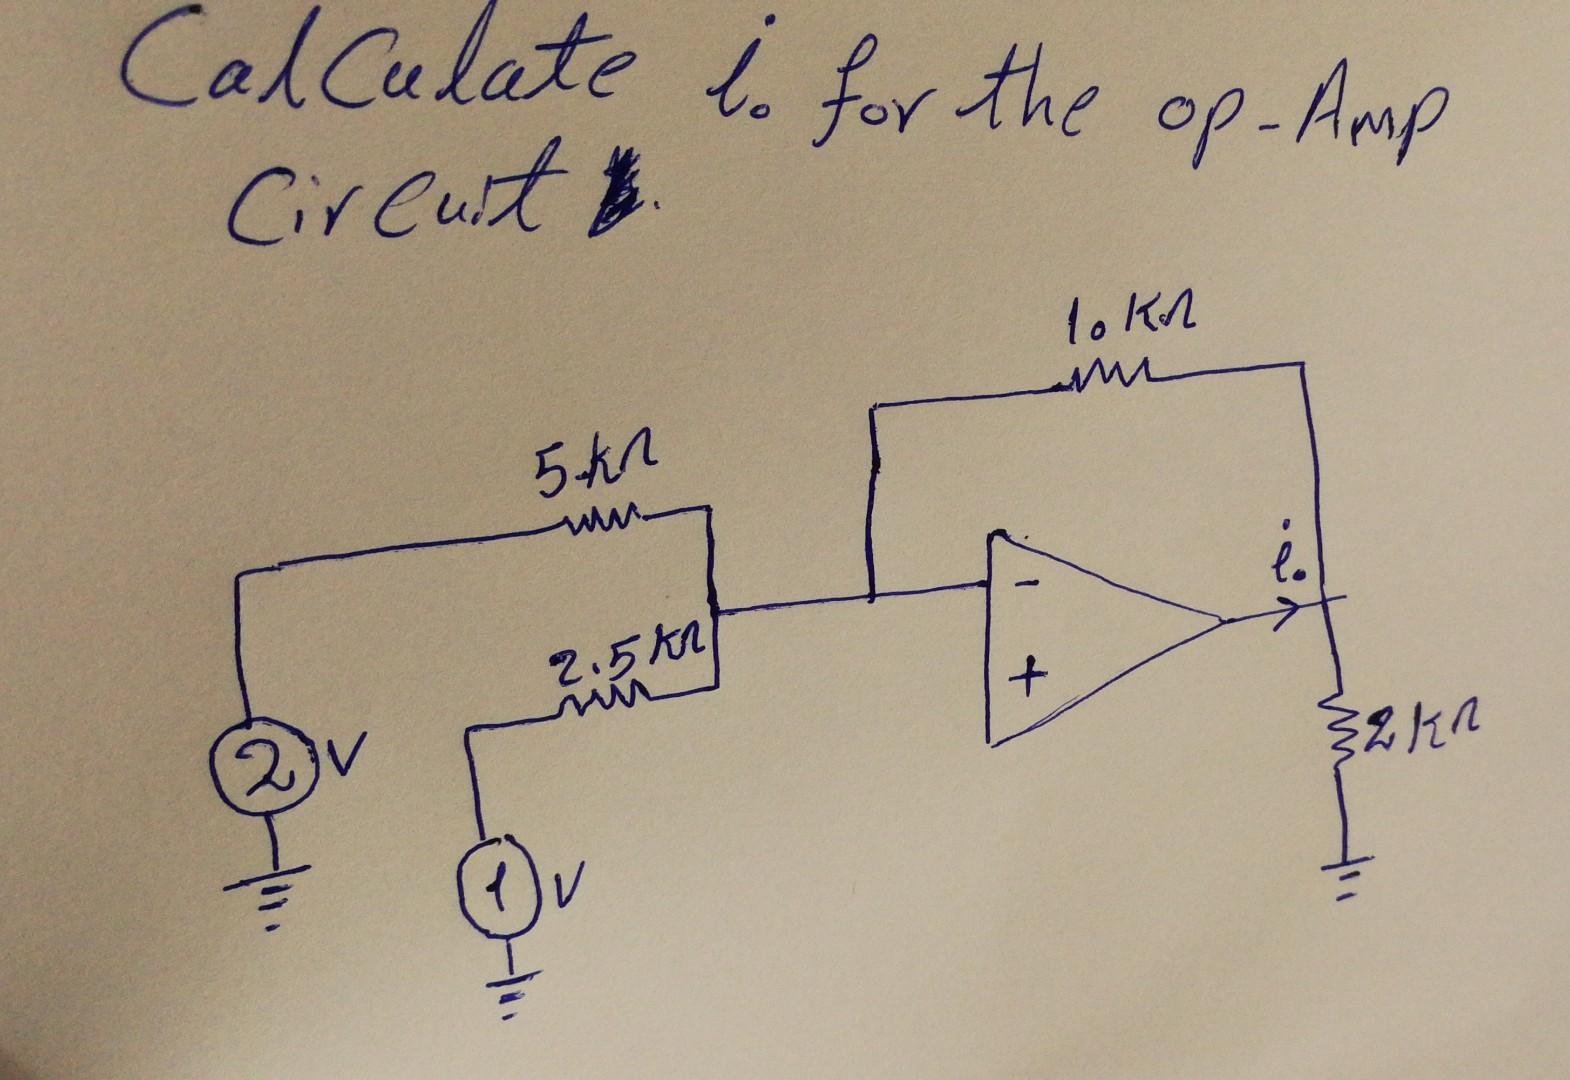 Calculate i. for the op-Amp
Circuit .
10 KΩ
5 kΩ
i.
-
2.5 KΩ
+
2 V
2 KΩ
1 V